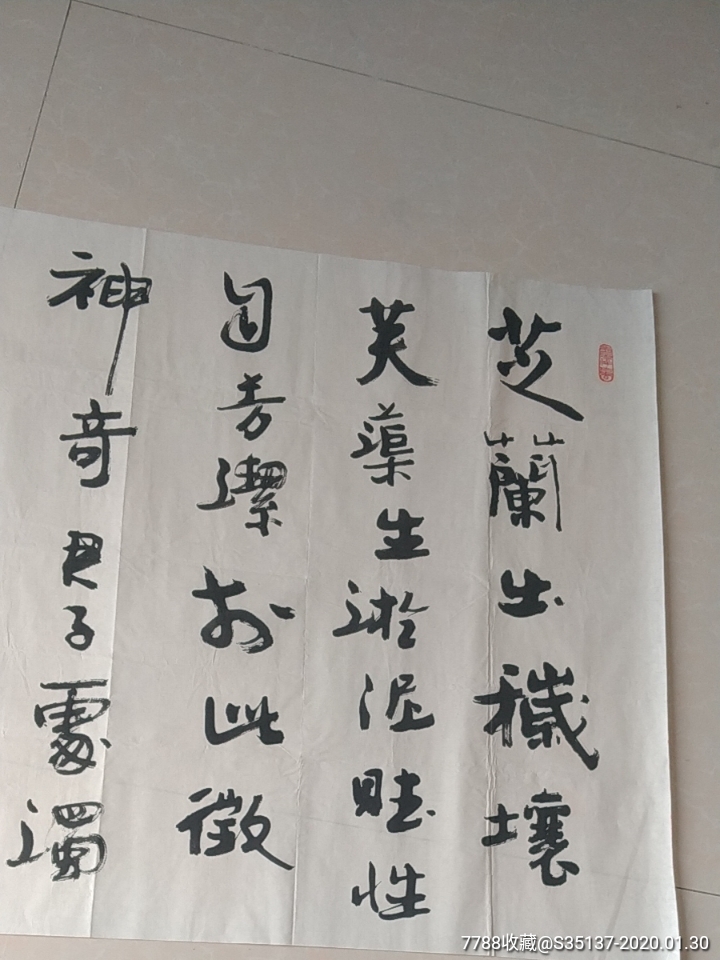 芝蘭出穢壤
芙蕖生淤泥賦性
自芳潔於此徵
神奇君子處濁
7788收藏@S35137-2020.01.30